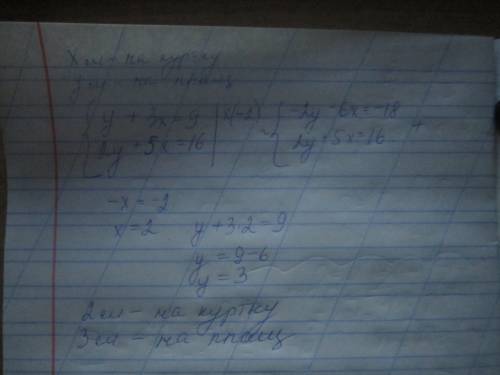 x м - на куртку
y м - на плащ
{ y + 3x = 9 | ×(-2) ~ { -2y - 6x = -18
{ 2y + 5x = 16 | { 2y + 5x = 16 +
-x = -2
x = 2 y + 3·2 = 9
y = 9-6
y = 3
2 см - на куртку
3 см - на плащ